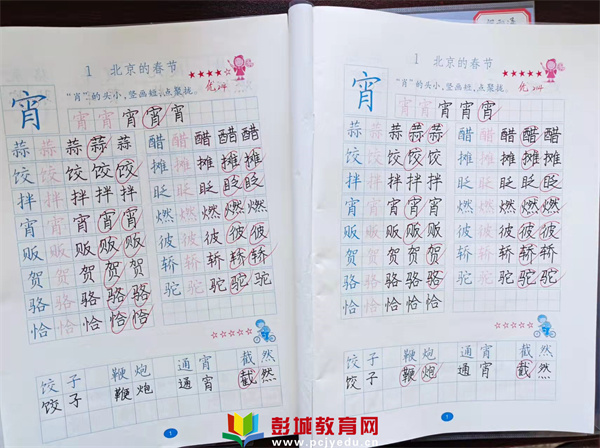 1 北京的春节
"宵"的头小,竖画短,点聚拢。
优
宵
宵 宵 宵 宵 宵
蒜 蒜 蒜 蒜 蒜 醋 醋 醋 醋 醋
饺 饺 饺 饺 饺 摊 摊 摊 摊 摊
拌 拌 拌 拌 拌 眨 眨 眨 眨 眨
宵 宵 宵 宵 宵 燃 燃 燃 燃 燃
贩 贩 贩 贩 贩 彼 彼 彼 彼 彼
贺 贺 贺 贺 贺 轿 轿 轿 轿 轿
骆 骆 骆 骆 骆 驼 驼 驼 驼 驼
恰 恰 恰 恰 恰
饺子 鞭炮 通宵 截然
饺子 鞭炮 通宵 截然
1
1 北京的春节
"宵"的头小,竖画短,点聚拢。
优
宵
宵 宵 宵 宵 宵
蒜 蒜 蒜 蒜 蒜 醋 醋 醋 醋 醋
饺 饺 饺 饺 饺 摊 摊 摊 摊 摊
拌 拌 拌 拌 拌 眨 眨 眨 眨 眨
宵 宵 宵 宵 宵 燃 燃 燃 燃 燃
贩 贩 贩 贩 贩 彼 彼 彼 彼 彼
贺 贺 贺 贺 贺 轿 轿 轿 轿 轿
骆 骆 骆 骆 骆 驼 驼 驼 驼 驼
恰 恰 恰 恰 恰
饺子 鞭炮 通宵 截然
饺子 鞭炮 通宵 截然
1
彭城教育网
www.pcjyedu.cn